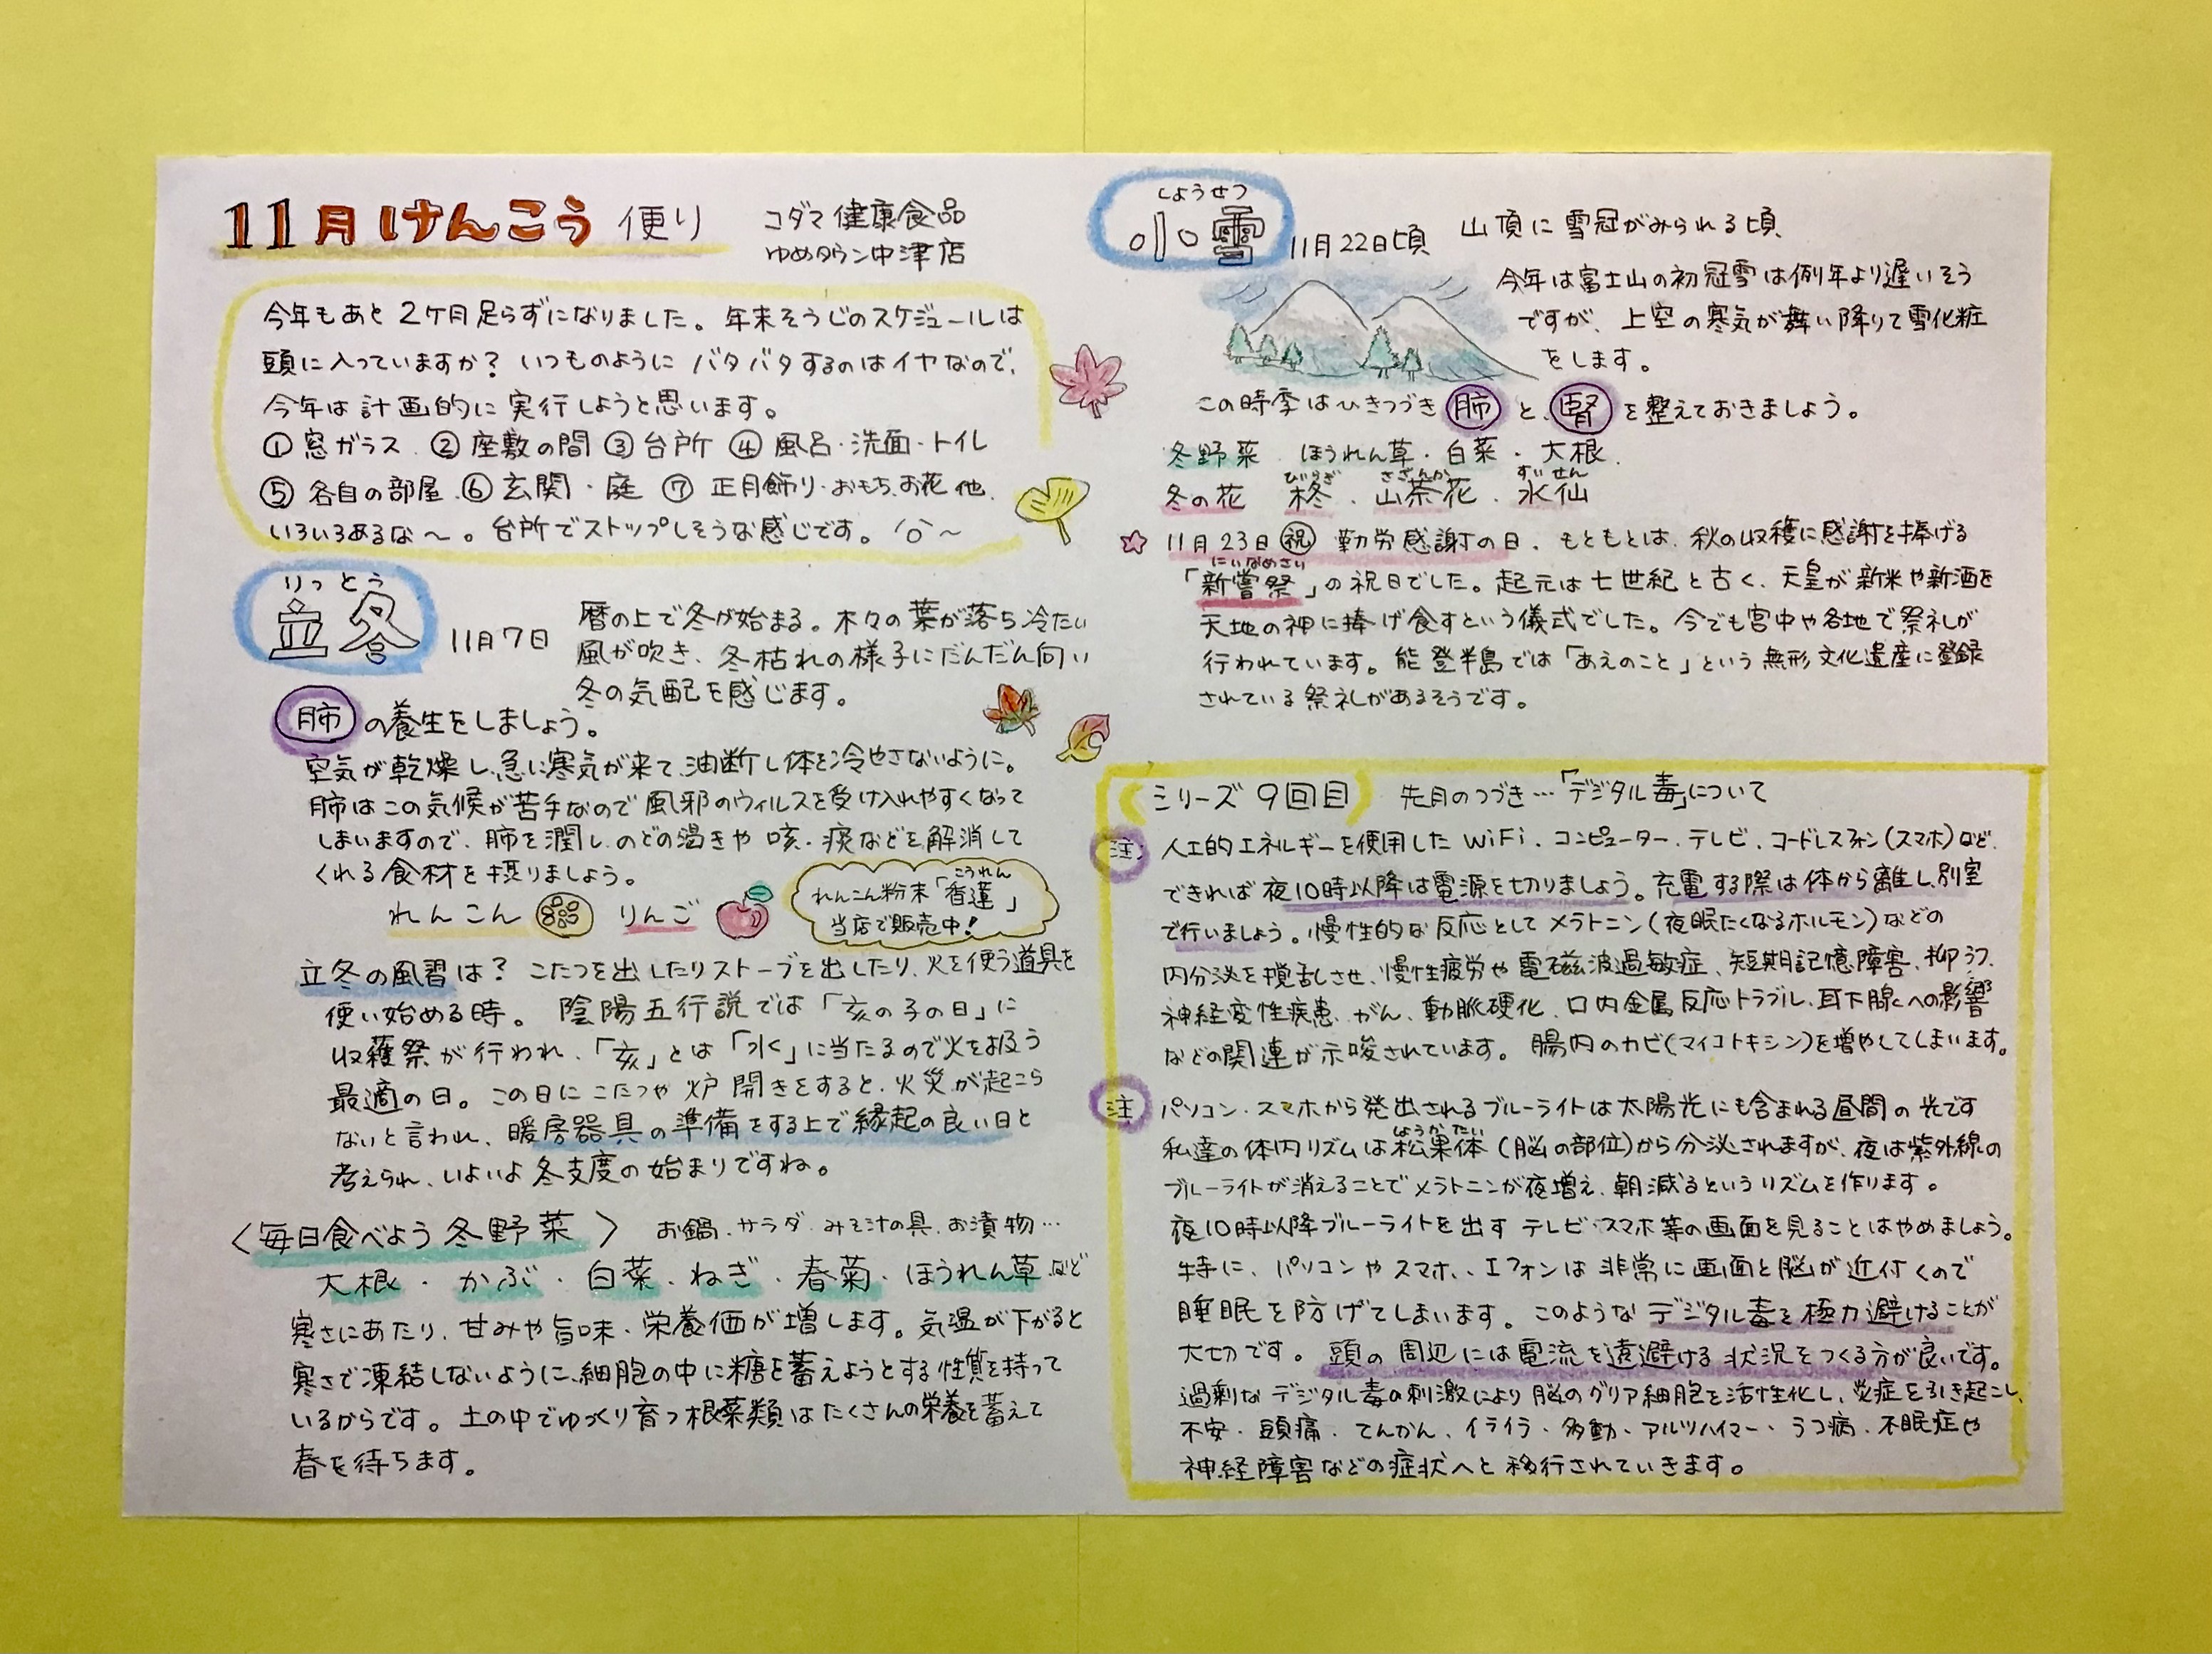 11月けんこう便り
コダマ健康食品
ゆめタウン中津店
今年もあと2ケ月足らずになりました。年末そうじのスケジュールは
頭に入っていますか?いつものようにバタバタするのはイヤなので、
今年は計画的に実行しようと思います。
①窓ガラス.②座敷の間③台所④風呂・洗面・トイレ
⑤各自の部屋.⑥玄関・庭⑦正月飾り・おもち、お花他.
いろいろあるな〜。台所でストップしそうな感じです。
りっとう
立冬
11月7日
暦の上で冬が始まる。木々の葉が落ち冷たい
風が吹き、冬枯れの様子にだんだん向い
冬の気配を感じます。
肺の養生をしましょう。
空気が乾燥し、急に寒気が来て、油断し体を冷やさないように。
肺はこの気候が苦手なので風邪のウィルスを受け入れやすくなって
しまいますので、肺を潤し、のどの渇きや咳・痰などを解消して
くれる食材を摂りましょう。
れんこん りんご
れんこん粉末「香蓮」
こうれん
当店で販売中!
立冬の風習は?こたつを出したりストーブを出したり、火を使う道具を
使い始める時。陰陽五行説では「亥の子の日」に
収穫祭が行われ、「亥」とは「水」に当たるので火を扱う
最適の日。この日にこたつや炉開きをすると、火災が起こら
ないと言われ、暖房器具の準備をする上で縁起の良い日と
考えられ、いよいよ冬支度の始まりですね。
〈毎日食べよう冬野菜〉 お鍋、サラダ、みそ汁の具、お漬物…
大根・かぶ・白菜・ねぎ・春菊・ほうれん草など
寒さにあたり、甘みや旨味・栄養価が増します。気温が下がると
寒さで凍結しないように、細胞の中に糖を蓄えようとする性質を持って
いるからです。土の中でゆっくり育つ根菜類はたくさんの栄養を蓄えて
春を待ちます。
しょうせつ
小雪
11月22日頃 山頂に雪冠がみられる頃
今年は富士山の初冠雪は例年より遅いそう
ですが、上空の寒気が舞い降りて雪化粧
をします。
この時季はひきつづき肺と、腎を整えておきましょう。
冬野菜 ほうれん草・白菜・大根.
ひいらぎ さざんか すいせん
冬の花 柊・山茶花・水仙
☆11月23日㊗勤労感謝の日.もともとは、秋の収穫に感謝を捧げる
にいなめさい
「新嘗祭」の祝日でした。起元は七世紀と古く、天皇が新米や新酒を
天地の神に捧げ食すという儀式でした。今でも宮中や各地で祭礼が
行われています。能登半島では「あえのこと」という無形文化遺産に登録
されている祭礼があるそうです。
シリーズ9回目 先月のつづき…「デジタル毒」について
注 人工的エネルギーを使用したWiFi、コンピューター、テレビ、コードレスフォン(スマホ)など.
できれば夜10時以降は電源を切りましょう。充電する際は体から離し、別室
で行いましょう。慢性的な反応としてメラトニン(夜眠たくなるホルモン)などの
内分泌を撹乱させ、慢性疲労や電磁波過敏症、短期記憶障害、抑うつ、
神経変性疾患、がん、動脈硬化、口内金属反応トラブル、耳下腺への影響
などの関連が示唆されています。腸内のカビ(マイコトキシン)を増やしてしまいます。
注 パソコン・スマホから発出されるブルーライトは太陽光にも含まれる昼間の光です
しょうかたい
私達の体内リズムは松果体(脳の部位)から分泌されますが、夜は紫外線の
ブルーライトが消えることでメラトニンが夜増え、朝減るというリズムを作ります。
夜10時以降ブルーライトを出すテレビ・スマホ等の画面を見ることはやめましょう。
特に、パソコンやスマホ、エフォンは非常に画面と脳が近付くので
睡眠を防げてしまいます。このようなデジタル毒を極力避けることが
大切です。頭の周辺には電流を遠避ける状況をつくる方が良いです。
過剰なデジタル毒の刺激により脳のグリア細胞を活性化し、炎症を引き起こし、
不安・頭痛・てんかん、イライラ・多動・アルツハイマー・うつ病・不眠症や
神経障害などの症状へと移行されていきます。